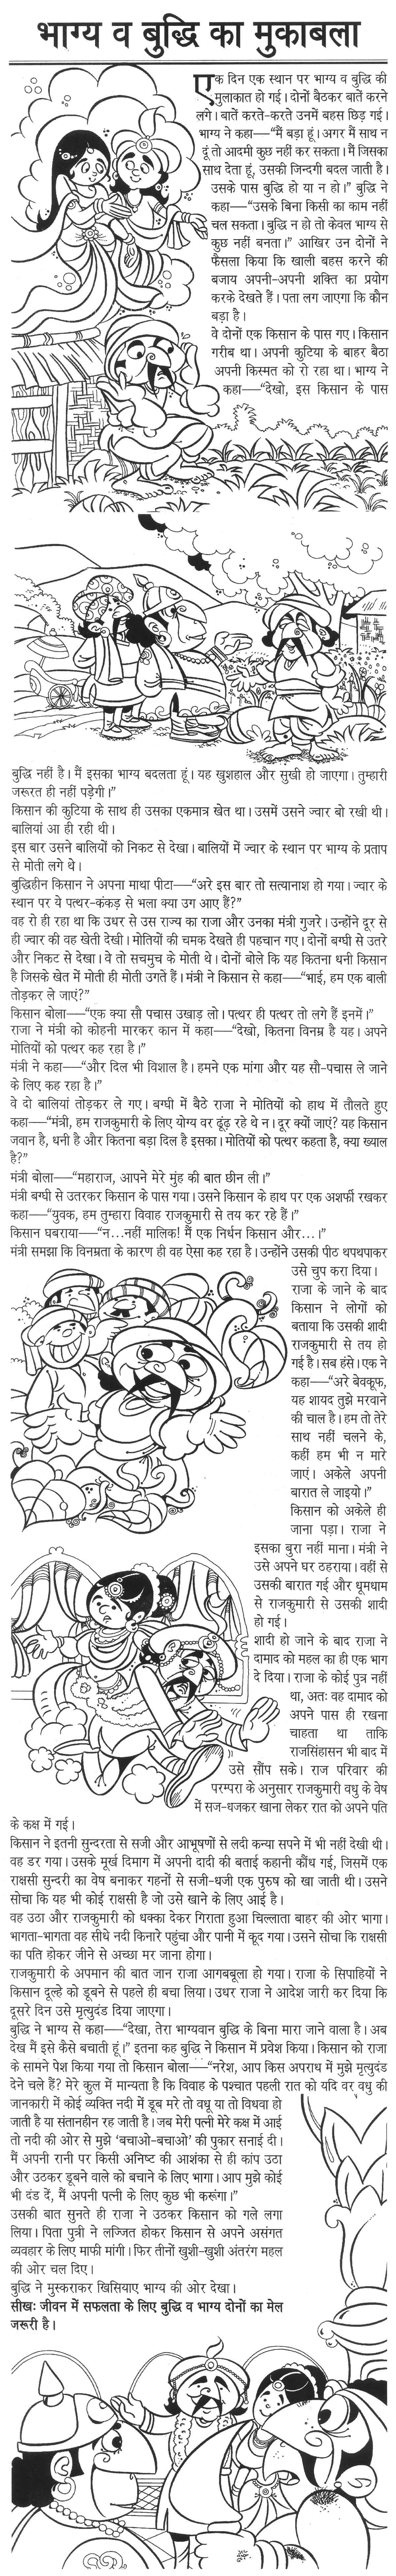 भाग्य व बुद्धि का मुकाबला
एक दिन एक स्थान पर भाग्य व बुद्धि की
मुलाकात हो गई। दोनों बैठकर बातें करने
लगे। बातें करते-करते उनमें बहस छिड़ गई।
भाग्य ने कहा—“मैं बड़ा हूं। अगर मैं साथ न
दूं तो आदमी कुछ नहीं कर सकता। मैं जिसका
साथ देता हूं, उसकी जिन्दगी बदल जाती है।
उसके पास बुद्धि हो या न हो।” बुद्धि ने
कहा—“उसके बिना किसी का काम नहीं
चल सकता। बुद्धि न हो तो केवल भाग्य से
कुछ नहीं बनता।” आखिर उन दोनों ने
फैसला किया कि खाली बहस करने की
बजाय अपनी-अपनी शक्ति का प्रयोग
करके देखते हैं। पता लग जाएगा कि कौन
बड़ा है।
वे दोनों एक किसान के पास गए। किसान
गरीब था। अपनी कुटिया के बाहर बैठा
अपनी किस्मत को रो रहा था। भाग्य ने
कहा—“देखो, इस किसान के पास
बुद्धि नहीं है। मैं इसका भाग्य बदलता हूं। यह खुशहाल और सुखी हो जाएगा। तुम्हारी
जरूरत ही नहीं पड़ेगी।”
किसान की कुटिया के साथ ही उसका एकमात्र खेत था। उसमें उसने ज्वार बो रखी थी।
बालियां आ ही रही थी।
इस बार उसने बालियों को निकट से देखा। बालियों में ज्वार के स्थान पर भाग्य के प्रताप
से मोती लगे थे।
बुद्धिहीन किसान ने अपना माथा पीटा—“अरे इस बार तो सत्यानाश हो गया। ज्वार के
स्थान पर ये पत्थर-कंकड़ से भला क्या उग आए हैं?”
वह रो ही रहा था कि उधर से उस राज्य का राजा और उनका मंत्री गुजरे। उन्होंने दूर से
ही ज्वार की वह खेती देखी। मोतियों की चमक देखते ही पहचान गए। दोनों बग्घी से उतरे
और निकट से देखा। वे तो सचमुच के मोती थे। दोनों बोले कि यह कितना धनी किसान
है जिसके खेत में मोती ही मोती उगते हैं। मंत्री ने किसान से कहा—“भाई, हम एक बाली
तोड़कर ले जाएं?”
किसान बोला—“एक क्या सौ पचास उखाड़ लो। पत्थर ही पत्थर तो लगे हैं इनमें।”
राजा ने मंत्री को कोहनी मारकर कान में कहा—“देखो, कितना विनम्र है यह। अपने
मोतियों को पत्थर कह रहा है।”
मंत्री ने कहा—“और दिल भी विशाल है। हमने एक मांगा और यह सौ-पचास ले जाने
के लिए कह रहा है।”
वे दो बालियां तोड़कर ले गए। बग्घी में बैठे राजा ने मोतियों को हाथ में तौलते हुए
कहा—“मंत्री, हम राजकुमारी के लिए योग्य वर ढूंढ़ रहे थे न। दूर क्यों जाएं? यह किसान
जवान है, धनी है और कितना बड़ा दिल है इसका। मोतियों को पत्थर कहता है, क्या ख्याल
है?”
मंत्री बोला—“महाराज, आपने मेरे मुंह की बात छीन ली।”
मंत्री बग्घी से उतरकर किसान के पास गया। उसने किसान के हाथ पर एक अशर्फी रखकर
कहा—“युवक, हम तुम्हारा विवाह राजकुमारी से तय कर रहे हैं।”
किसान घबराया—“न...नहीं मालिक! मैं एक निर्धन किसान और...।”
मंत्री समझा कि विनम्रता के कारण ही वह ऐसा कह रहा है। उन्होंने उसकी पीठ थपथपाकर
उसे चुप करा दिया।
राजा के जाने के बाद
किसान ने लोगों को
बताया कि उसकी शादी
राजकुमारी से तय हो
गई है। सब हंसे। एक ने
कहा—“अरे बेवकूफ,
यह शायद तुझे मरवाने
की चाल है। हम तो तेरे
साथ नहीं चलने के,
कहीं हम भी न मारे
जाएं। अकेले अपनी
बारात ले जाइयो।”
किसान को अकेले ही
जाना पड़ा। राजा ने
इसका बुरा नहीं माना। मंत्री ने
उसे अपने घर ठहराया। वहीं से
उसकी बारात गई और धूमधाम
से राजकुमारी से उसकी शादी
हो गई।
शादी हो जाने के बाद राजा ने
दामाद को महल का ही एक भाग
दे दिया। राजा के कोई पुत्र नहीं
था, अतः वह दामाद को
अपने पास ही रखना
चाहता था ताकि
राजसिंहासन भी बाद में
उसे सौंप सके। राज परिवार की
परम्परा के अनुसार राजकुमारी वधु के वेष
में सज-धजकर खाना लेकर रात को अपने पति
के कक्ष में गई।
किसान ने इतनी सुन्दरता से सजी और आभूषणों से लदी कन्या सपने में भी नहीं देखी थी।
वह डर गया। उसके मूर्ख दिमाग में अपनी दादी की बताई कहानी कौंध गई, जिसमें एक
राक्षसी सुन्दरी का वेष बनाकर गहनों से सजी-धजी एक पुरुष को खा जाती थी। उसने
सोचा कि यह भी कोई राक्षसी है जो उसे खाने के लिए आई है।
वह उठा और राजकुमारी को धक्का देकर गिराता हुआ चिल्लाता बाहर की ओर भागा।
भागता-भागता वह सीधे नदी किनारे पहुंचा और पानी में कूद गया। उसने सोचा कि राक्षसी
का पति होकर जीने से अच्छा मर जाना होगा।
राजकुमारी के अपमान की बात जान राजा आगबबूला हो गया। राजा के सिपाहियों ने
किसान दूल्हे को डूबने से पहले ही बचा लिया। उधर राजा ने आदेश जारी कर दिया कि
दूसरे दिन उसे मृत्युदंड दिया जाएगा।
बुद्धि ने भाग्य से कहा—“देखा, तेरा भाग्यवान बुद्धि के बिना मारा जाने वाला है। अब
देख मैं इसे कैसे बचाती हूं।” इतना कह बुद्धि ने किसान में प्रवेश किया। किसान को राजा
के सामने पेश किया गया तो किसान बोला—“नरेश, आप किस अपराध में मुझे मृत्युदंड
देने चले हैं? मेरे कुल में मान्यता है कि विवाह के पश्चात पहली रात को यदि वर वधु की
जानकारी में कोई व्यक्ति नदी में डूब मरे तो वधू या तो विधवा हो
जाती है या संतानहीन रह जाती है। जब मेरी पत्नी मेरे कक्ष में आई
तो नदी की ओर से मुझे ‘बचाओ-बचाओ’ की पुकार सनाई दी।
मैं अपनी रानी पर किसी अनिष्ट की आशंका से ही कांप उठा
और उठकर डूबने वाले को बचाने के लिए भागा। आप मुझे कोई
भी दंड दें, मैं अपनी पत्नी के लिए कुछ भी करूंगा।”
उसकी बात सुनते ही राजा ने उठकर किसान को गले लगा
लिया। पिता पुत्री ने लज्जित होकर किसान से अपने असंगत
व्यवहार के लिए माफी मांगी। फिर तीनों खुशी-खुशी अंतरंग महल
की ओर चल दिए।
बुद्धि ने मुस्कराकर खिसियाए भाग्य की ओर देखा।
सीखः जीवन में सफलता के लिए बुद्धि व भाग्य दोनों का मेल
जरूरी है।